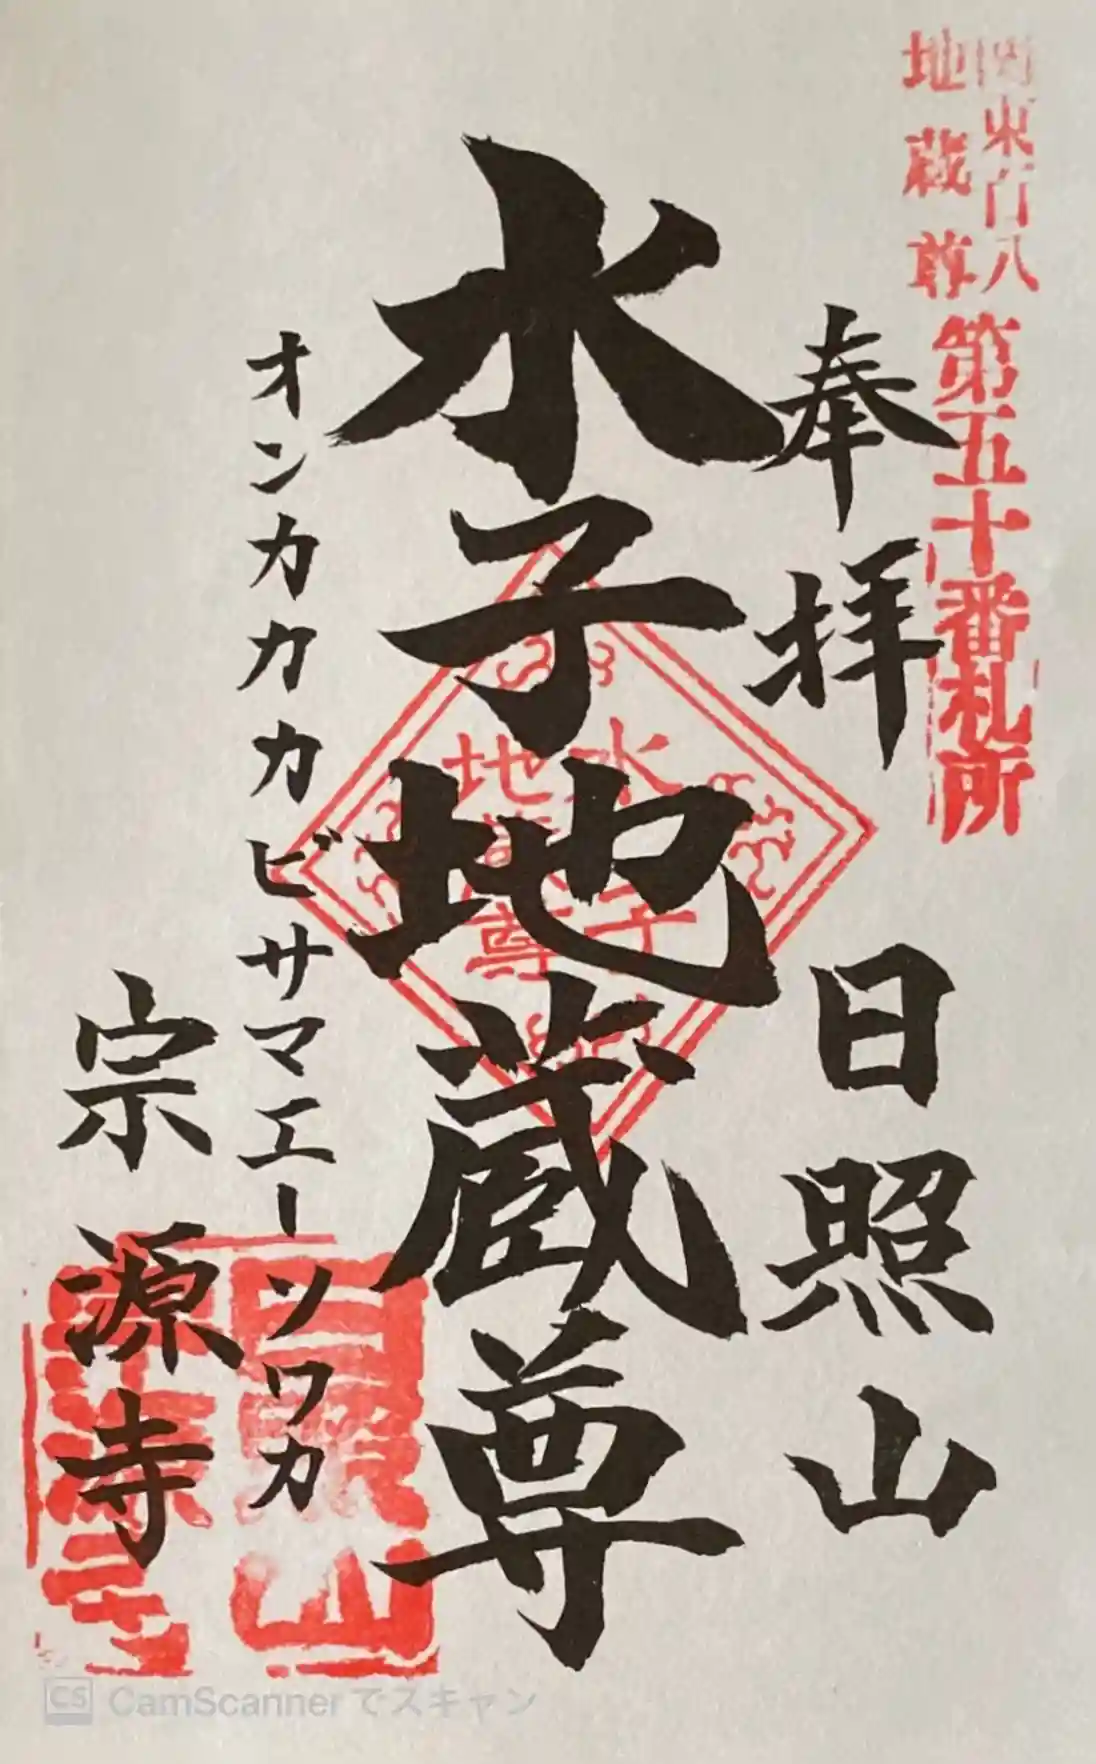 関東百八
地蔵尊
第五十番札所
奉拝
日照山
水子地蔵尊
水子
地蔵尊
オンカカカビサマエーソワカ
宗源寺
日照山
宗源寺
CS CamScannerでスキャン